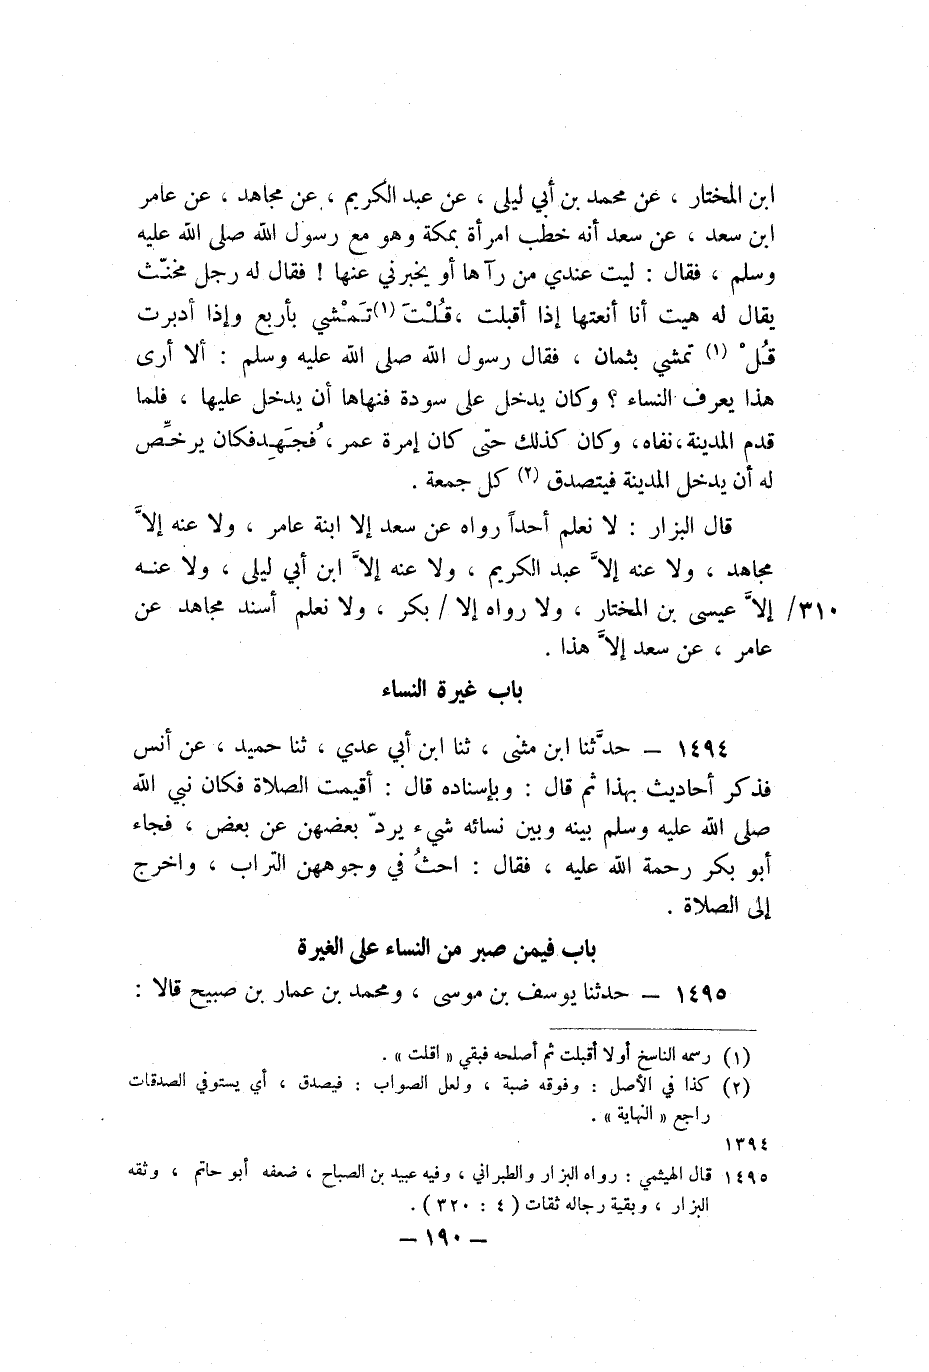 ابن المختار ، عن محمد بن أبي ليلى ، عن عبد الكريم ، عن مجاهد ، عن عامر
ابن سعد ، عن سعد أنه خطب امرأة بمكة وهو مع رسول الله صلى الله عليه
وسلم ، فقال : ليت عندي من رآها أو يخبرني عنها ! فقال له رجل مخنّث
يقال له هيت أنا أنعتها إذا أقبلت ، قُلْتَ (١) تَمْشي بأربع وإذا أدبرت
قُلْ (١) تمشي بثمان ، فقال رسول الله صلى الله عليه وسلم : ألا أرى
هذا يعرف النساء ؟ وكان يدخل على سودة فنهاها أن يدخل عليها ، فلما
قدم المدينة ، نفاه ، وكان كذلك حتى كان إمرة عمر ، فُجَهِد فكان يرخِّص
له أن يدخل المدينة فيتصدق (٢) كل جمعة .
قال البزار : لا نعلم أحداً رواه عن سعد إلا ابنة عامر ، ولا عنه إلاَّ
مجاهد ، ولا عنه إلاَّ عبد الكريم ، ولا عنه إلاَّ ابن أبي ليلى ، ولا عنه
٣١٠/ إلاَّ عيسى بن المختار ، ولا رواه إلا / بكر ، ولا نعلم أسند مجاهد عن
عامر ، عن سعد إلاَّ هذا .
باب غيرة النساء
١٤٩٤ – حدَّثنا ابن مثنى ، ثنا ابن أبي عدي ، ثنا حميد ، عن أنس
فذكر أحاديث بهذا ثم قال : وبإسناده قال : أقيمت الصلاة فكان نبي الله
صلى الله عليه وسلم بينه وبين نسائه شيء يردّ بعضهن عن بعض ، فجاء
أبو بكر رحمة الله عليه ، فقال : احثُ في وجوههن التراب ، واخرج
إلى الصلاة .
باب فيمن صبر من النساء على الغيرة
١٤٩٥ – حدثنا يوسف بن موسى ، ومحمد بن عمار بن صبيح قالا :
(١) رسمه الناسخ أولا أقبلت ثم أصلحه فبقي « اقلت » .
(٢) كذا في الأصل : وفوقه ضبة ، ولعل الصواب : فيصدق ، أي يستوفي الصدقات
راجع « النهاية » .
١٣٩٤
١٤٩٥ قال الهيثمي : رواه البزار والطبراني ، وفيه عبيد بن الصباح ، ضعفه أبو حاتم ، وثقه
البزار ، وبقية رجاله ثقات ( ٤ : ٣٢٠ ) .
– ١٩٠ –